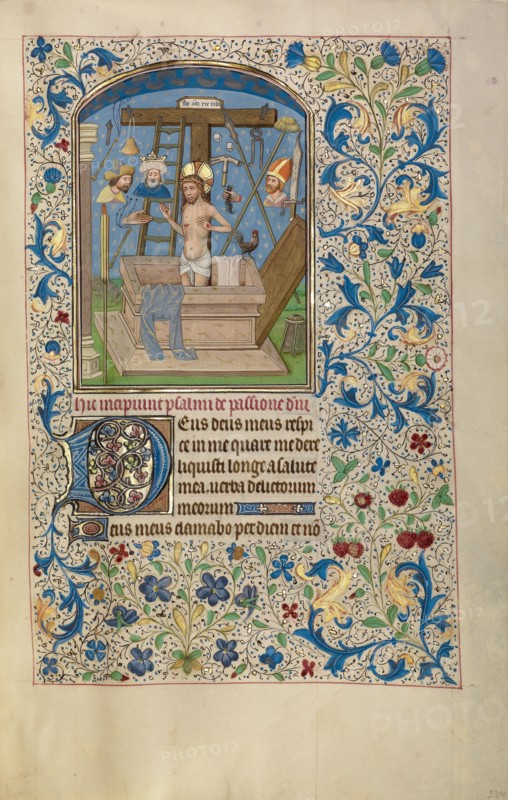 hic incipiunt psalmi de passione dni
Deus deus meus respi
ce in me quare me dere
liquisti longe a salute
mea. uerba delictorum
meorum
Deus meus clamabo per diem et no
PHOTO12
234